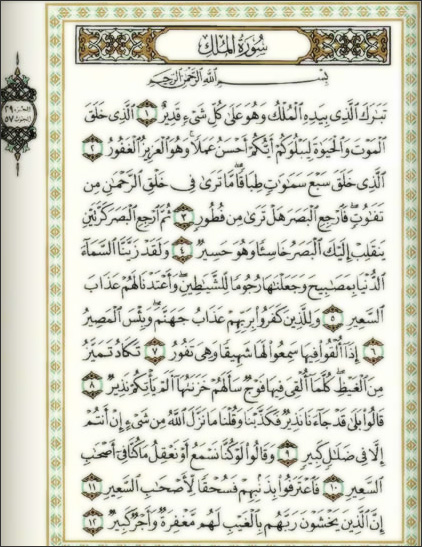 سُورَةُ المُلْكِ
بِسْمِ اللَّهِ الرَّحْمَٰنِ الرَّحِيمِ
الجزء ٢٩
الحزب ٥٧
تَبَٰرَكَ ٱلَّذِى بِيَدِهِ ٱلْمُلْكُ وَهُوَ عَلَىٰ كُلِّ شَىْءٍ قَدِيرٌ ١ ٱلَّذِى خَلَقَ
ٱلْمَوْتَ وَٱلْحَيَوٰةَ لِيَبْلُوَكُمْ أَيُّكُمْ أَحْسَنُ عَمَلًا وَهُوَ ٱلْعَزِيزُ ٱلْغَفُورُ ٢
ٱلَّذِى خَلَقَ سَبْعَ سَمَٰوَٰتٍ طِبَاقًا مَّا تَرَىٰ فِى خَلْقِ ٱلرَّحْمَٰنِ مِن
تَفَٰوُتٍ فَٱرْجِعِ ٱلْبَصَرَ هَلْ تَرَىٰ مِن فُطُورٍ ٣ ثُمَّ ٱرْجِعِ ٱلْبَصَرَ كَرَّتَيْنِ
يَنقَلِبْ إِلَيْكَ ٱلْبَصَرُ خَاسِئًا وَهُوَ حَسِيرٌ ٤ وَلَقَدْ زَيَّنَّا ٱلسَّمَآءَ
ٱلدُّنْيَا بِمَصَٰبِيحَ وَجَعَلْنَٰهَا رُجُومًا لِّلشَّيَٰطِينِ وَأَعْتَدْنَا لَهُمْ عَذَابَ
ٱلسَّعِيرِ ٥ وَلِلَّذِينَ كَفَرُوا۟ بِرَبِّهِمْ عَذَابُ جَهَنَّمَ وَبِئْسَ ٱلْمَصِيرُ
٦ إِذَآ أُلْقُوا۟ فِيهَا سَمِعُوا۟ لَهَا شَهِيقًا وَهِىَ تَفُورُ ٧ تَكَادُ تَمَيَّزُ
مِنَ ٱلْغَيْظِ كُلَّمَآ أُلْقِىَ فِيهَا فَوْجٌ سَأَلَهُمْ خَزَنَتُهَآ أَلَمْ يَأْتِكُمْ نَذِيرٌ ٨
قَالُوا۟ بَلَىٰ قَدْ جَآءَنَا نَذِيرٌ فَكَذَّبْنَا وَقُلْنَا مَا نَزَّلَ ٱللَّهُ مِن شَىْءٍ إِنْ أَنتُمْ
إِلَّا فِى ضَلَٰلٍ كَبِيرٍ ٩ وَقَالُوا۟ لَوْ كُنَّا نَسْمَعُ أَوْ نَعْقِلُ مَا كُنَّا فِىٓ أَصْحَٰبِ
ٱلسَّعِيرِ ١٠ فَٱعْتَرَفُوا۟ بِذَنۢبِهِمْ فَسُحْقًا لِّأَصْحَٰبِ ٱلسَّعِيرِ ١١
إِنَّ ٱلَّذِينَ يَخْشَوْنَ رَبَّهُم بِٱلْغَيْبِ لَهُم مَّغْفِرَةٌ وَأَجْرٌ كَبِيرٌ ١٢